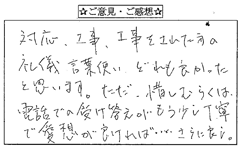 ☆ご意見・ご感想☆
対応、工事、工事をされた方の
礼儀 言葉使い、どれも良かった
と思います。ただ、惜しむらくは、
電話での受け答えがもう少し丁寧
で愛想が良ければ…さらに良し。